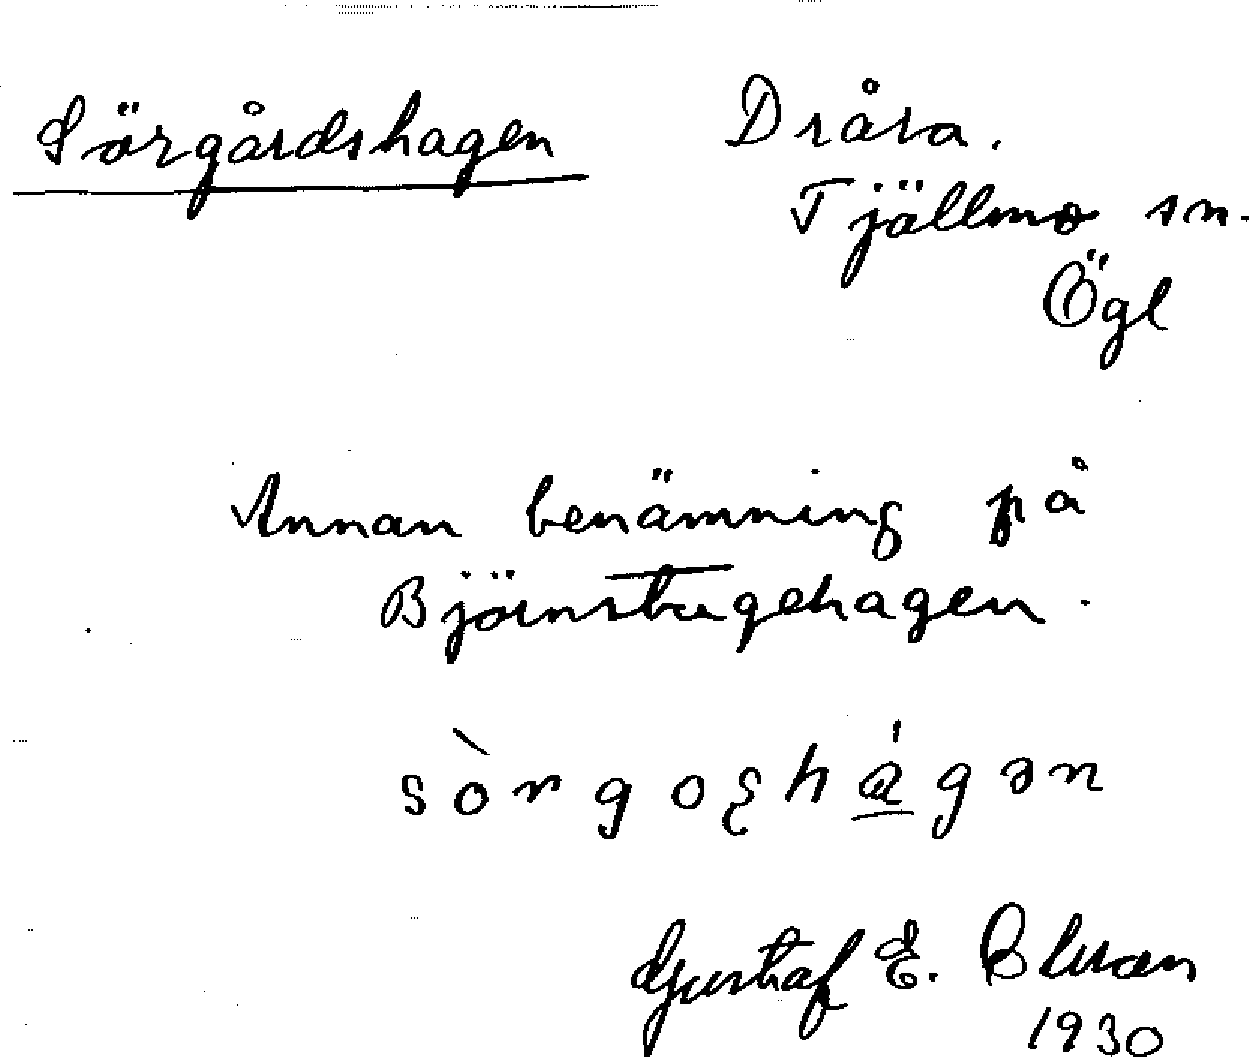 Sörgårdshagen Dråra.
Tjällmo sn.
Ögl
Annan benämning på
Björnstugehagen.
sòrgoʂhágən
Gustaf E.
1930